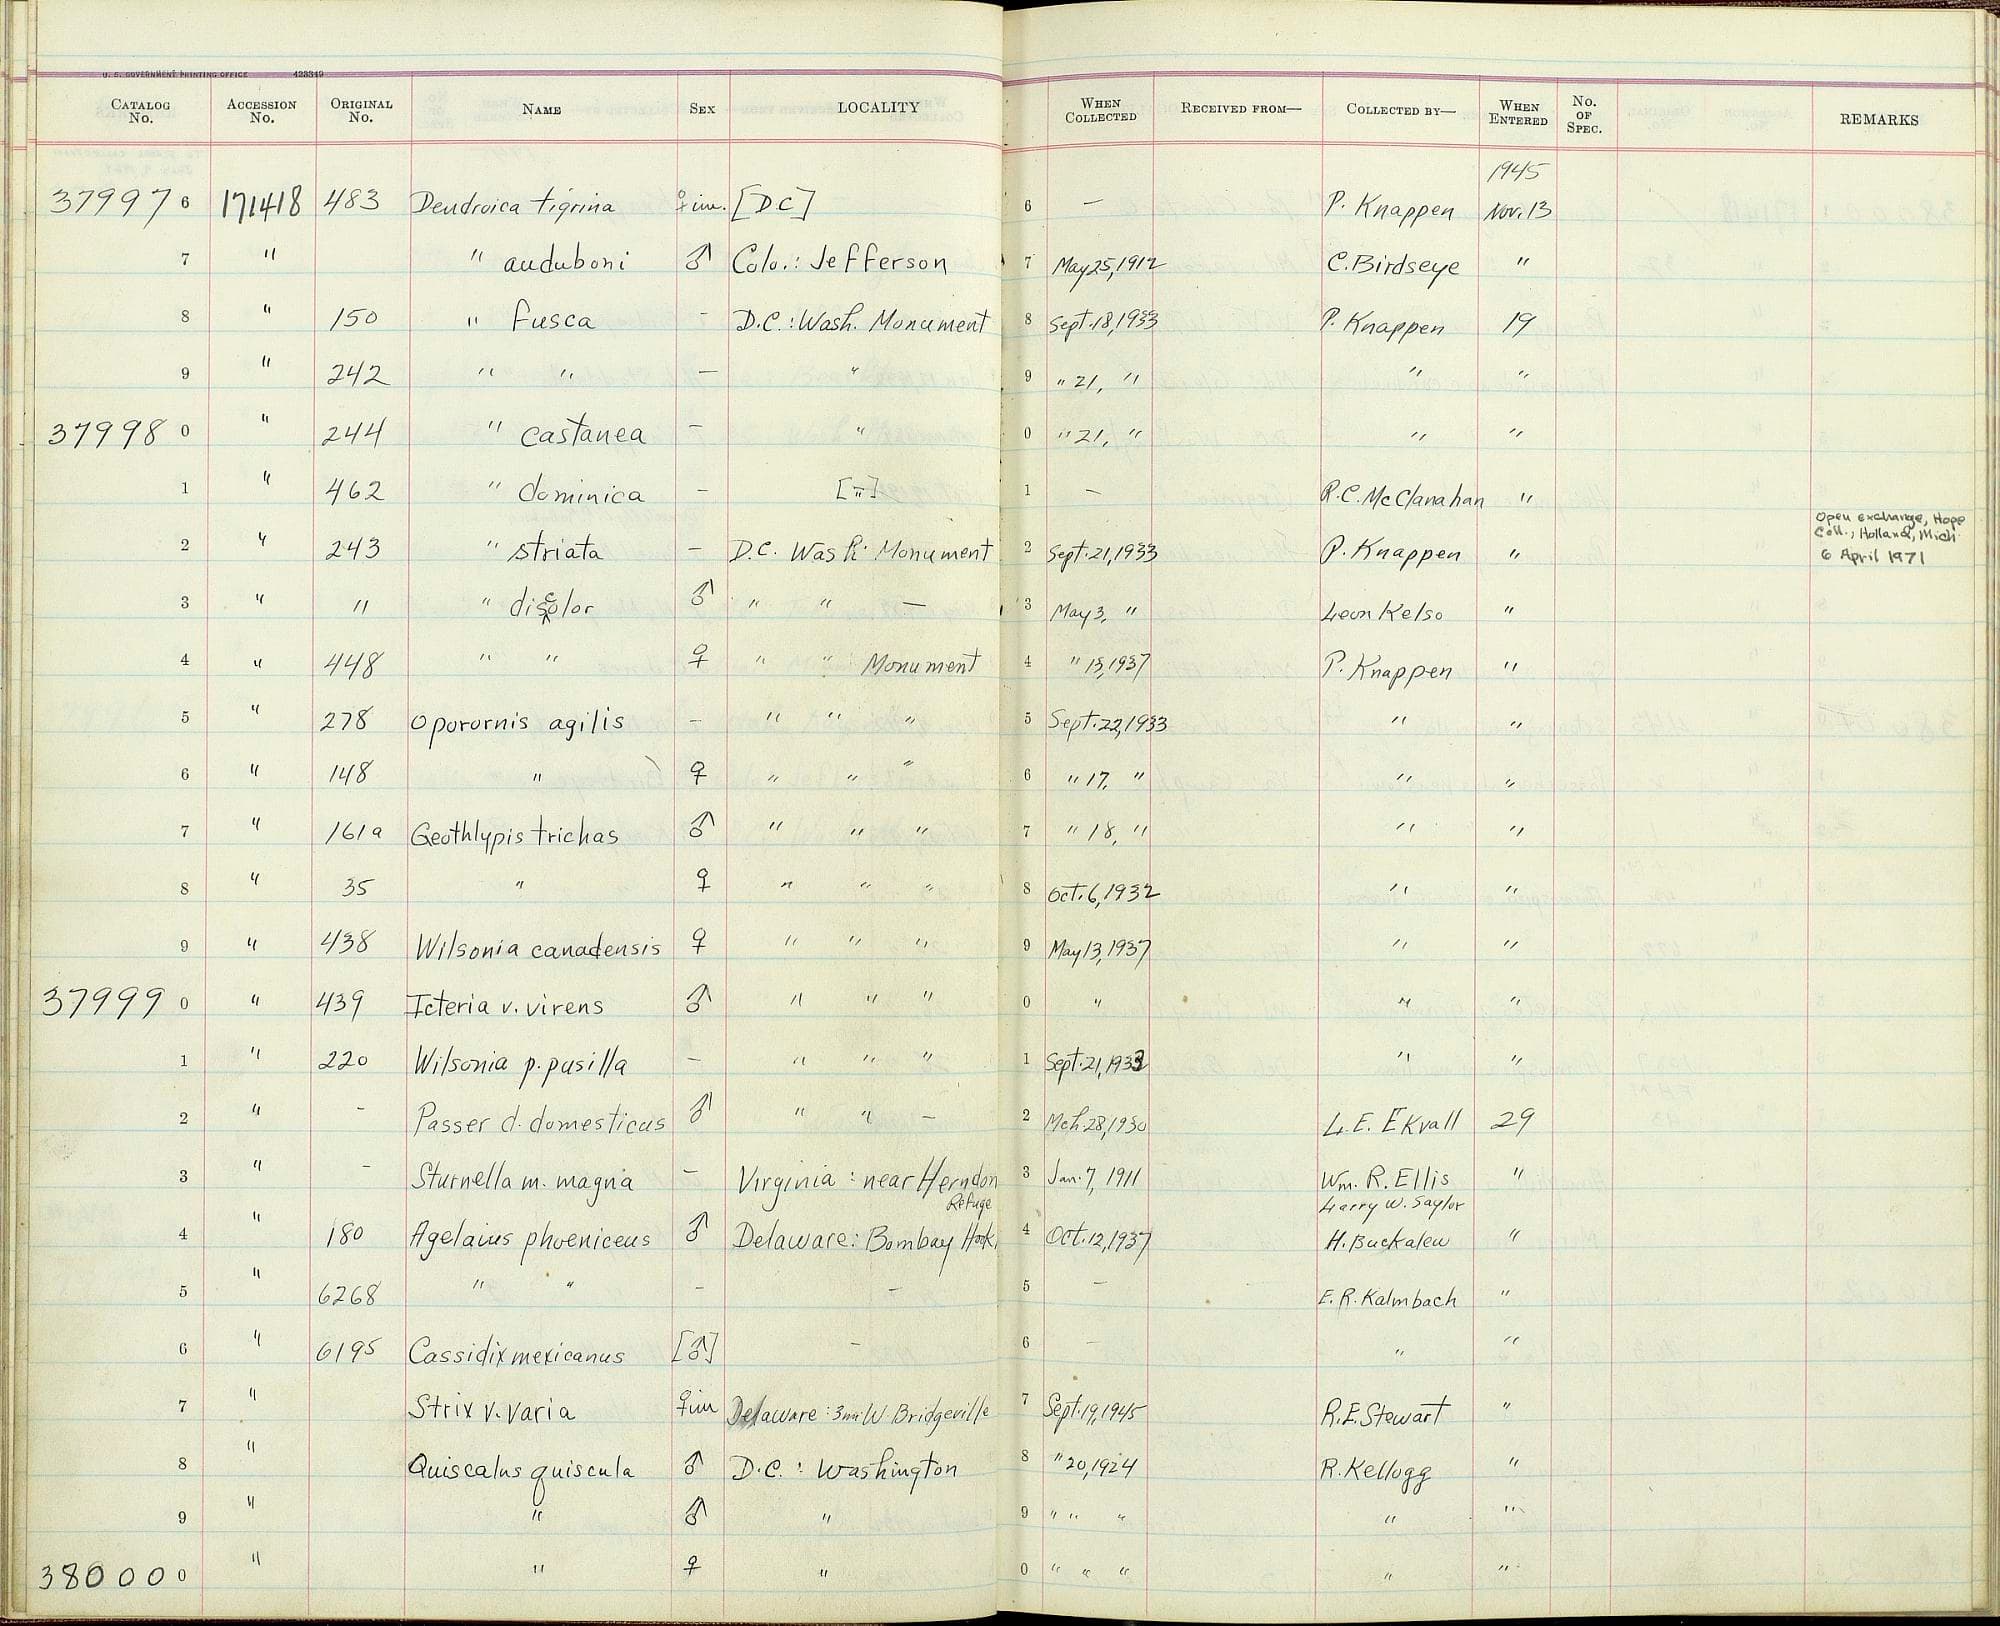 U. S. GOVERNMENT PRINTING OFFICE 423349
CATALOG No. ACCESSION No. ORIGINAL No. NAME SEX LOCALITY WHEN COLLECTED RECEIVED FROM— COLLECTED BY— WHEN ENTERED No. OF SPEC. REMARKS
1945
37997 6 171418 483 Dendroica tigrina ♀ im. [D.C] 6 — P. Knappen Nov. 13
7 " " auduboni ♂ Colo.: Jefferson 7 May 25, 1912 C. Birdseye "
8 " 150 " fusca - D.C.: Wash. Monument 8 Sept. 18, 1933 P. Knappen 19
9 " 242 " " — " 9 " 21, " " "
37998 0 " 244 " castanea — " 0 " 21, " " "
1 " 462 " dominica — ["] 1 — R.C. McClanahan "
Open exchange, Hope
Coll., Holland, Mich
6 April 1971
2 " 243 " striata — D.C. Wash. Monument 2 Sept. 21, 1933 P. Knappen "
3 " " " discolor ♂ " " — 3 May 3, " Leon Kelso "
4 " 448 " " ♀ " " Monument 4 " 15, 1937 P. Knappen "
5 " 278 Oporornis agilis — " " " 5 Sept. 22, 1933 " "
6 " 148 " ♀ " " " 6 " 17, " " "
7 " 161a Geothlypis trichas ♂ " " " 7 " 18, " " "
8 " 35 " ♀ " " " 8 Oct. 6, 1932 " "
9 " 438 Wilsonia canadensis ♀ " " " 9 May 13, 1937 " "
37999 0 " 439 Icteria v. virens ♂ " " " 0 " " "
1 " 220 Wilsonia p. pusilla — " " " 1 Sept. 21, 1933 " "
2 " - Passer d. domesticus ♂ " " — 2 Mch 28, 1930 L. E. Ekvall 29
3 " - Sturnella m. magna — Virginia: near Herndon 3 Jan. 7, 1911 Wm. R. Ellis "
Refuge Larry W. Saylor
4 " 180 Agelaius phoeniceus ♂ Delaware: Bombay Hook 4 Oct. 12, 1937 H. Buckalew "
5 " 6268 " " - — 5 — E. R. Kalmbach "
6 " 6195 Cassidix mexicanus [♂] — 6 — " "
7 " Strix v. varia ♀ im Delaware: 3 mi W Bridgeville 7 Sept. 19, 1945 R.E. Stewart "
8 " Quiscalus quiscula ♂ D.C.: Washington 8 " 20, 1924 R. Kellogg "
9 " " ♂ " 9 " " " " "
38000 0 " " ♀ " 0 " " " " "